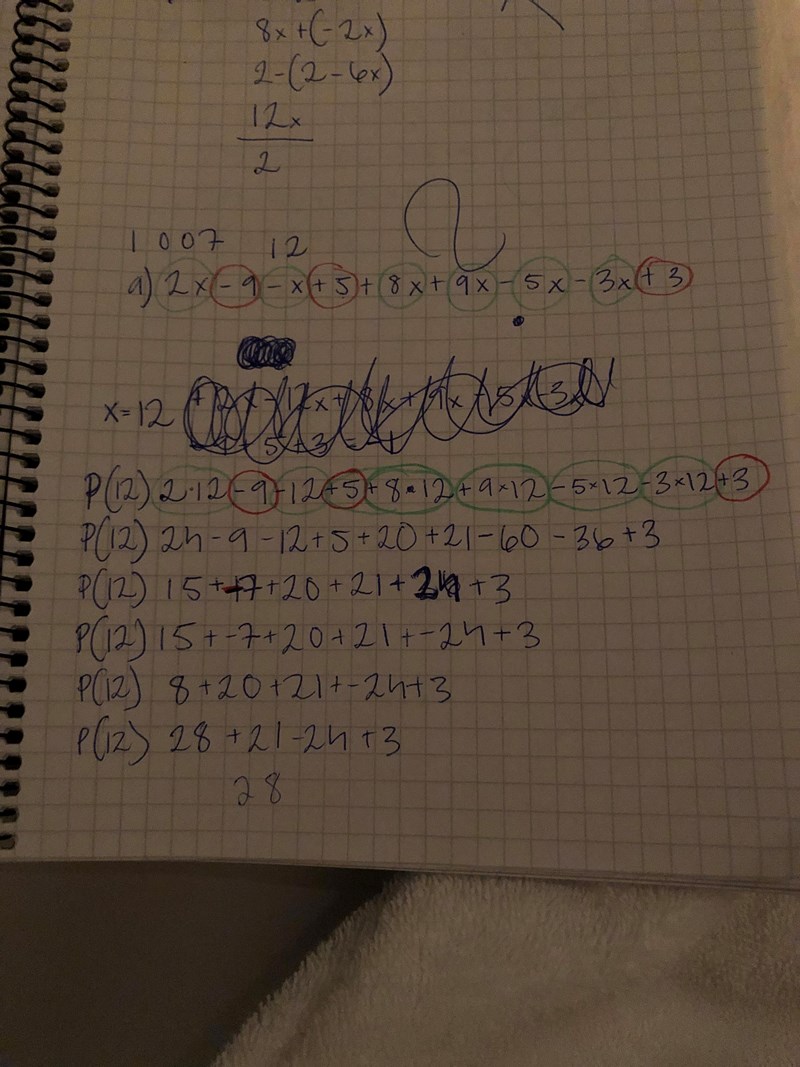 8x+(-2x)
2-(2-6x)
12x
2
1007 12
a) 2x-9-x+5+8x+9x-5x-3x+3
x=12
P(12) 2·12-9-12+5+8·12+9×12-5×12-3×12+3
P(12) 24-9-12+5+20+21-60-36+3
P(12) 15+-7+20+21+24+3
P(12) 15+-7+20+21+-24+3
P(12) 8+20+21+-24+3
P(12) 28+21-24+3
28